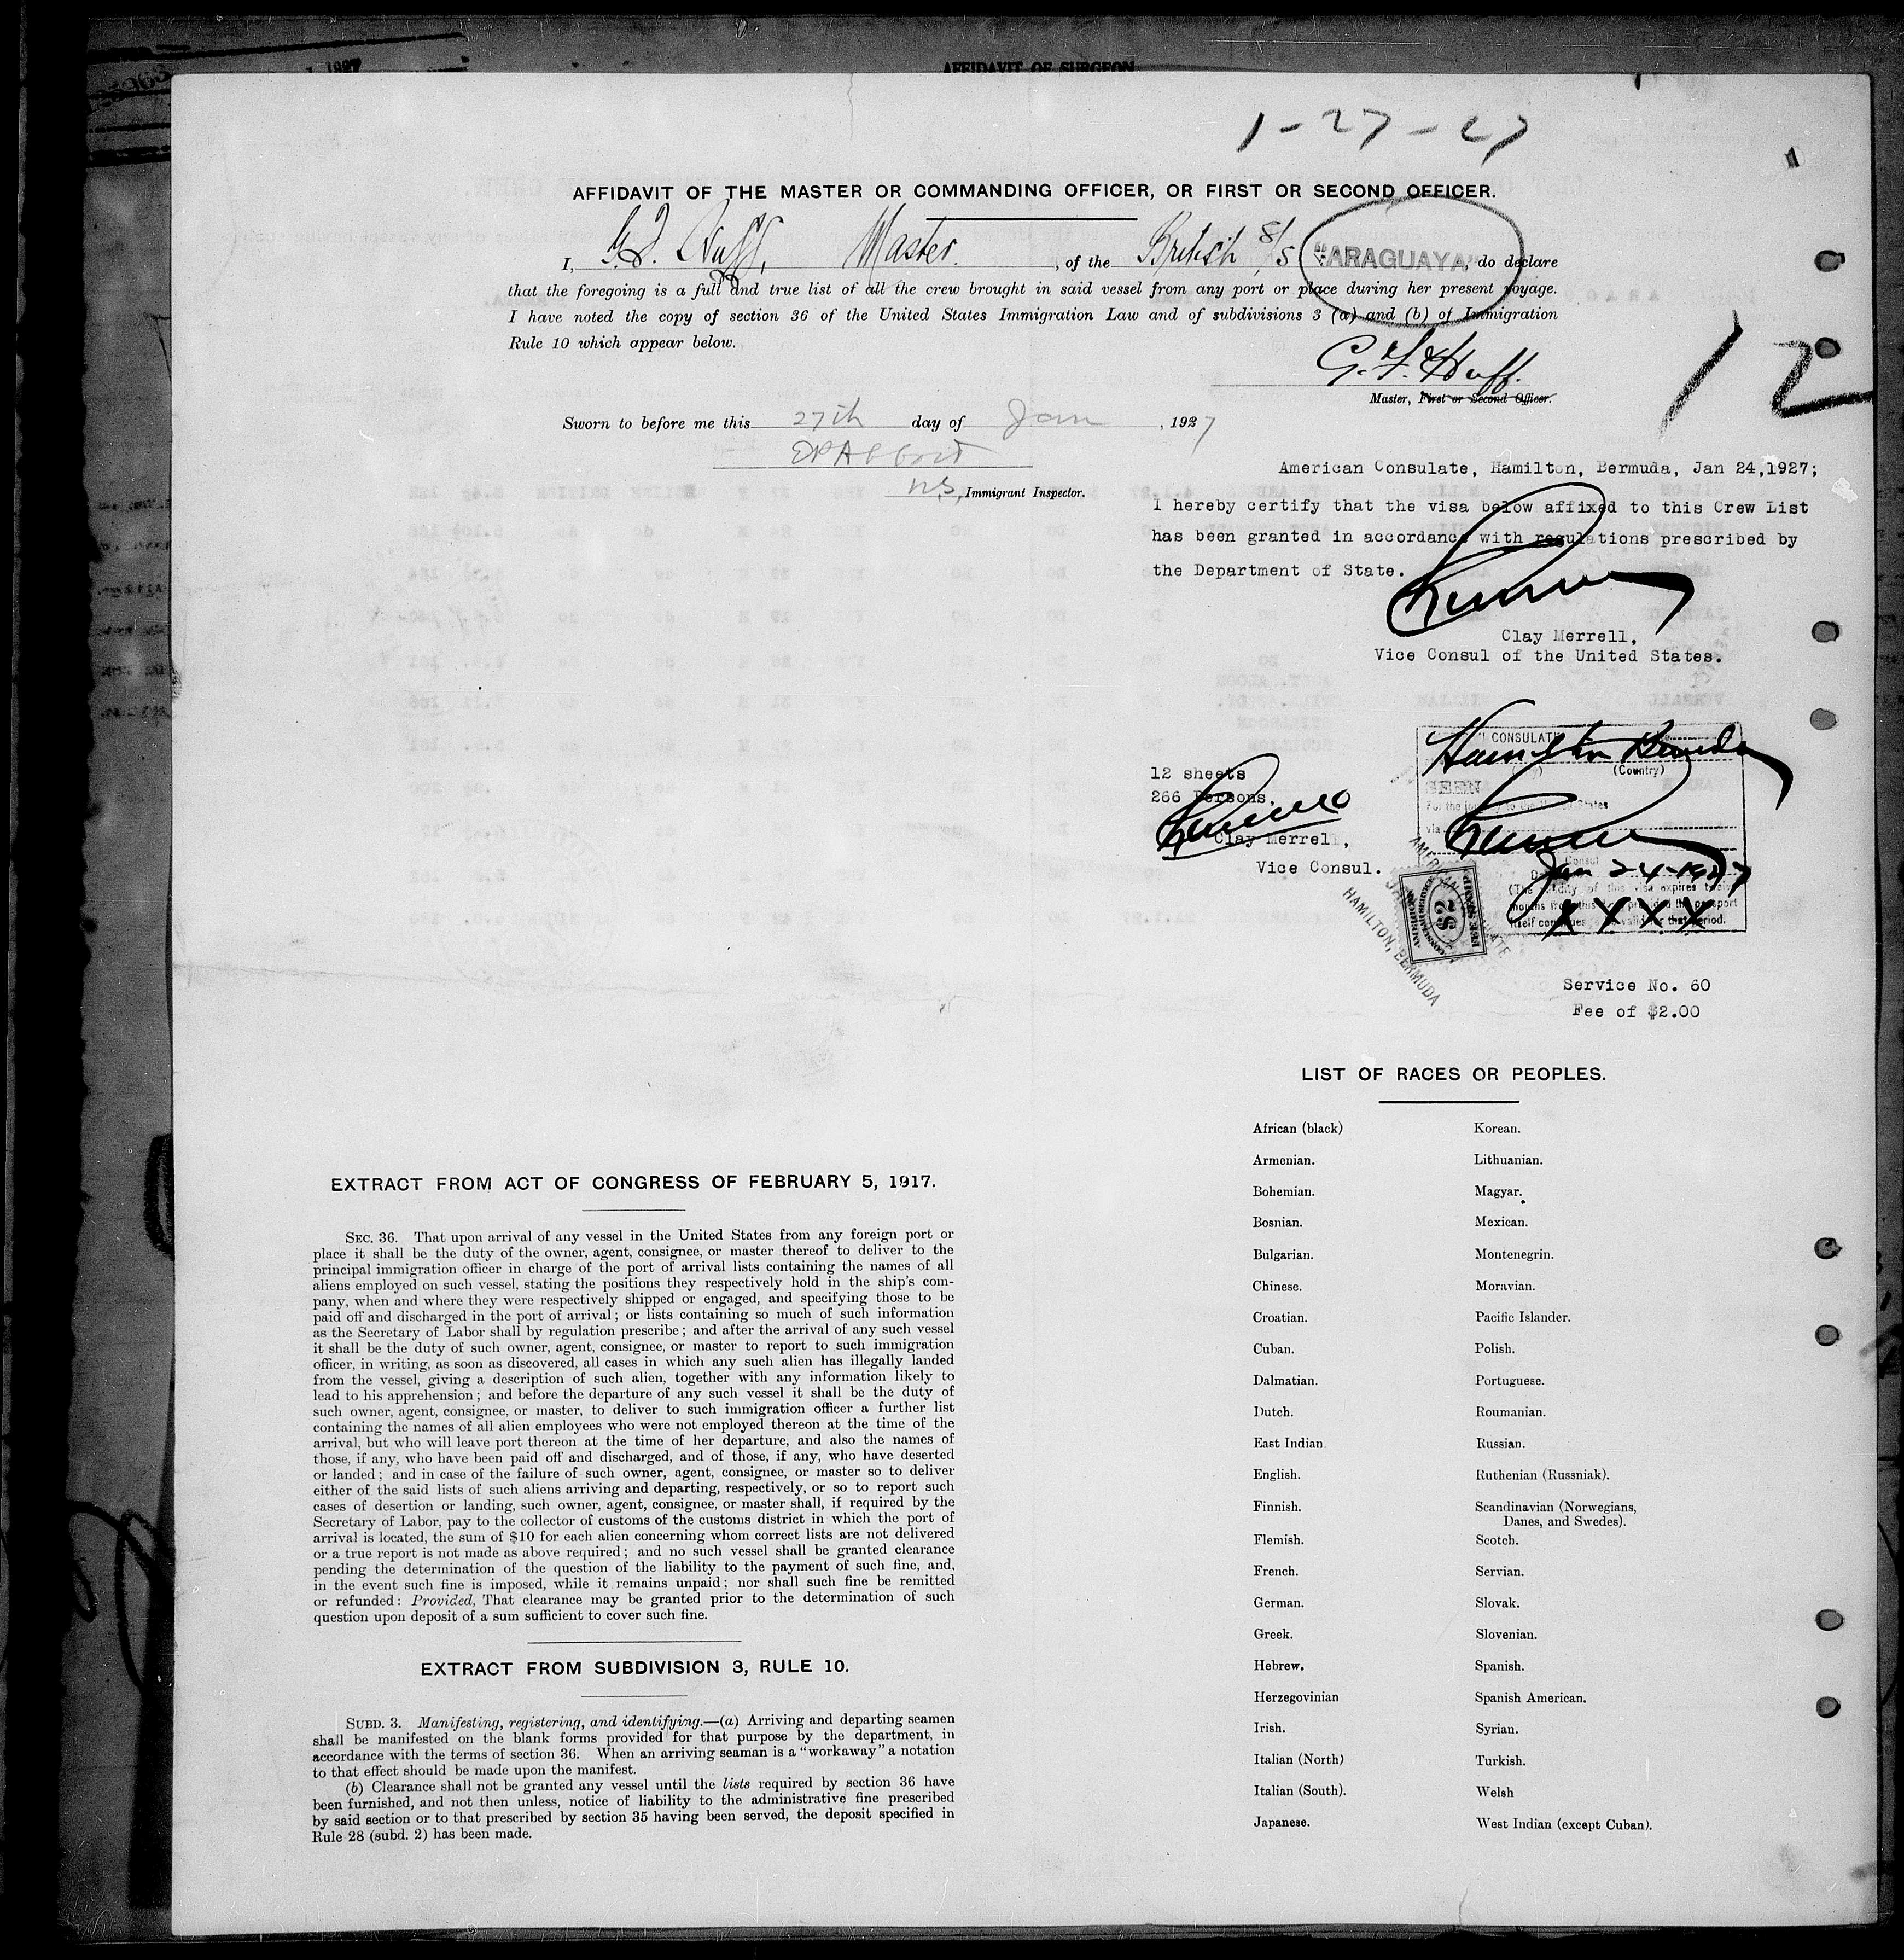 AFFIDAVIT OF SURGEON
1-27-27
AFFIDAVIT OF THE MASTER OR COMMANDING OFFICER, OR FIRST OR SECOND OFFICER.
I, G.F. Huff, Master. , of the British S/S "ARAGUAYA", do declare
that the foregoing is a full and true list of all the crew brought in said vessel from any port or place during her present voyage.
I have noted the copy of section 36 of the United States Immigration Law and of subdivisions 3 (a) and (b) of Immigration
Rule 10 which appear below.
G. F. Huff.
Master, First or Second Officer.
12
Sworn to before me this 27th day of Jan , 1927
EP Abbott
U.S., Immigrant Inspector.
American Consulate, Hamilton, Bermuda, Jan 24,1927;
I hereby certify that the visa below affixed to this Crew List
has been granted in accordance with regulations prescribed by
the Department of State.
Clay Merrell,
Vice Consul of the United States.
12 sheets
266 Persons,
Clay Merrell,
Vice Consul.
CONSULATE
Hamilton Bermuda
(Country)
SEEN
For the journey to the United States
via
Consul
Jan 24-1927
(The validity of this visa expires twelve
months from this date provided the passport
itself continues valid for that period.
XXXX
AMERICAN CONSULATE
HAMILTON, BERMUDA
AMERICAN CONSULAR SERVICE
$2
FEE STAMP
Service No. 60
Fee of $2.00
EXTRACT FROM ACT OF CONGRESS OF FEBRUARY 5, 1917.
SEC. 36. That upon arrival of any vessel in the United States from any foreign port or
place it shall be the duty of the owner, agent, consignee, or master thereof to deliver to the
principal immigration officer in charge of the port of arrival lists containing the names of all
aliens employed on such vessel, stating the positions they respectively hold in the ship's com-
pany, when and where they were respectively shipped or engaged, and specifying those to be
paid off and discharged in the port of arrival; or lists containing so much of such information
as the Secretary of Labor shall by regulation prescribe; and after the arrival of any such vessel
it shall be the duty of such owner, agent, consignee, or master to report to such immigration
officer, in writing, as soon as discovered, all cases in which any such alien has illegally landed
from the vessel, giving a description of such alien, together with any information likely to
lead to his apprehension; and before the departure of any such vessel it shall be the duty of
such owner, agent, consignee, or master, to deliver to such immigration officer a further list
containing the names of all alien employees who were not employed thereon at the time of the
arrival, but who will leave port thereon at the time of her departure, and also the names of
those, if any, who have been paid off and discharged, and of those, if any, who have deserted
or landed; and in case of the failure of such owner, agent, consignee, or master so to deliver
either of the said lists of such aliens arriving and departing, respectively, or so to report such
cases of desertion or landing, such owner, agent, consignee, or master shall, if required by the
Secretary of Labor, pay to the collector of customs of the customs district in which the port of
arrival is located, the sum of $10 for each alien concerning whom correct lists are not delivered
or a true report is not made as above required; and no such vessel shall be granted clearance
pending the determination of the question of the liability to the payment of such fine, and,
in the event such fine is imposed, while it remains unpaid; nor shall such fine be remitted
or refunded: Provided, That clearance may be granted prior to the determination of such
question upon deposit of a sum sufficient to cover such fine.
EXTRACT FROM SUBDIVISION 3, RULE 10.
SUBD. 3. Manifesting, registering, and identifying.—(a) Arriving and departing seamen
shall be manifested on the blank forms provided for that purpose by the department, in
accordance with the terms of section 36. When an arriving seaman is a "workaway" a notation
to that effect should be made upon the manifest.
(b) Clearance shall not be granted any vessel until the lists required by section 36 have
been furnished, and not then unless, notice of liability to the administrative fine prescribed
by said section or to that prescribed by section 35 having been served, the deposit specified in
Rule 28 (subd. 2) has been made.
LIST OF RACES OR PEOPLES.
African (black)
Armenian.
Bohemian.
Bosnian.
Bulgarian.
Chinese.
Croatian.
Cuban.
Dalmatian.
Dutch.
East Indian
English.
Finnish.
Flemish.
French.
German.
Greek.
Hebrew.
Herzegovinian
Irish.
Italian (North)
Italian (South).
Japanese.
Korean.
Lithuanian.
Magyar.
Mexican.
Montenegrin.
Moravian.
Pacific Islander.
Polish.
Portuguese.
Roumanian.
Russian.
Ruthenian (Russniak).
Scandinavian (Norwegians,
Danes, and Swedes).
Scotch.
Servian.
Slovak.
Slovenian.
Spanish.
Spanish American.
Syrian.
Turkish.
Welsh
West Indian (except Cuban).